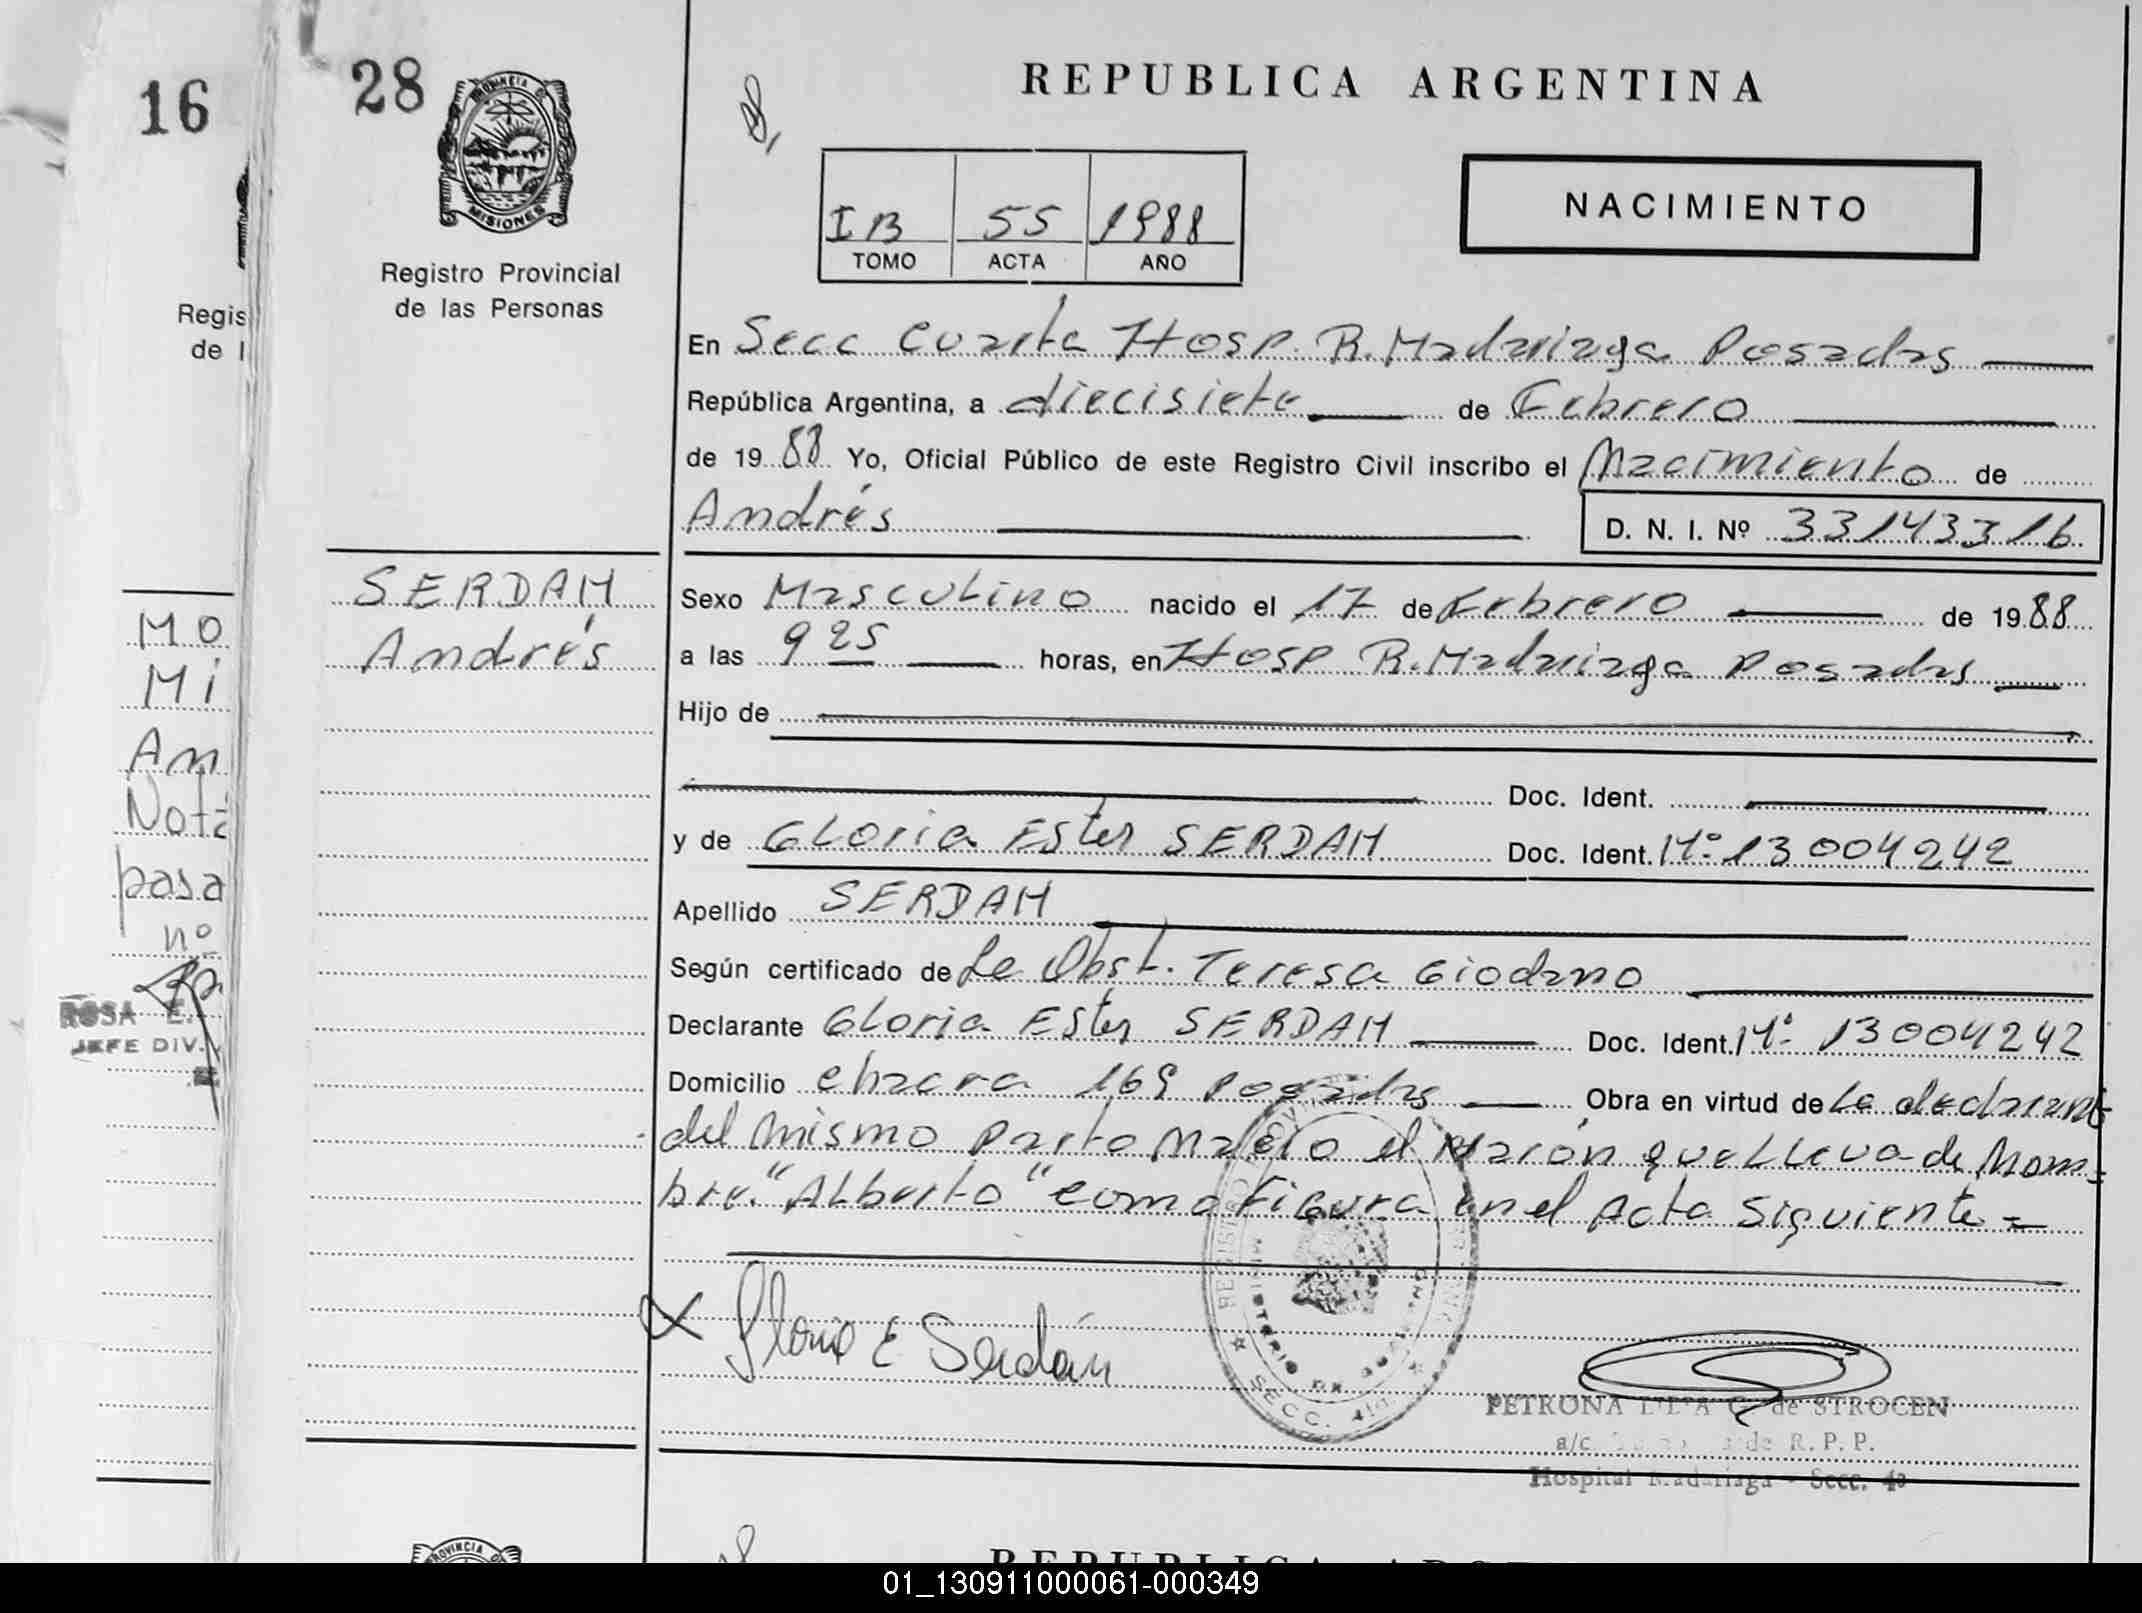 16
Regis
de l
MO
Mi
An
Nota
pasa
nº
ROSA E.
JEFE DIV.
28
PROVINCIA DE
MISIONES
Registro Provincial
de las Personas
SERDAN
Andrés
REPUBLICA ARGENTINA
IB 55 1988
TOMO ACTA AÑO
NACIMIENTO
En Secc Cuarta Hosp. R. Madariaga Posadas
República Argentina, a diecisiete de Febrero
de 1988 Yo, Oficial Público de este Registro Civil inscribo el Nacimiento de
Andrés D. N. I. Nº 33143316
Sexo Masculino nacido el 17 de Febrero de 1988
a las 9 25 horas, en Hosp R. Madariaga Posadas
Hijo de
Doc. Ident.
y de Gloria Ester SERDAN Doc. Ident. Nº 13004242
Apellido SERDAN
Según certificado de La Obst. Teresa Giodano
Declarante Gloria Ester SERDAN Doc. Ident. Nº 13004242
Domicilio chacra 169 Posadas Obra en virtud de La declarante
del mismo parto Nacio el Varón que LLeva de Nom-
bre "Alberto" como Figura en el Acta Siguiente =
Gloria E Serdán
SECC. 4ta
PETRONA de STROCEN
a/c. de R. P. P.
Hospital Madariaga - Secc. 4a
PROVINCIA
REPUBLICA
01_130911000061-000349